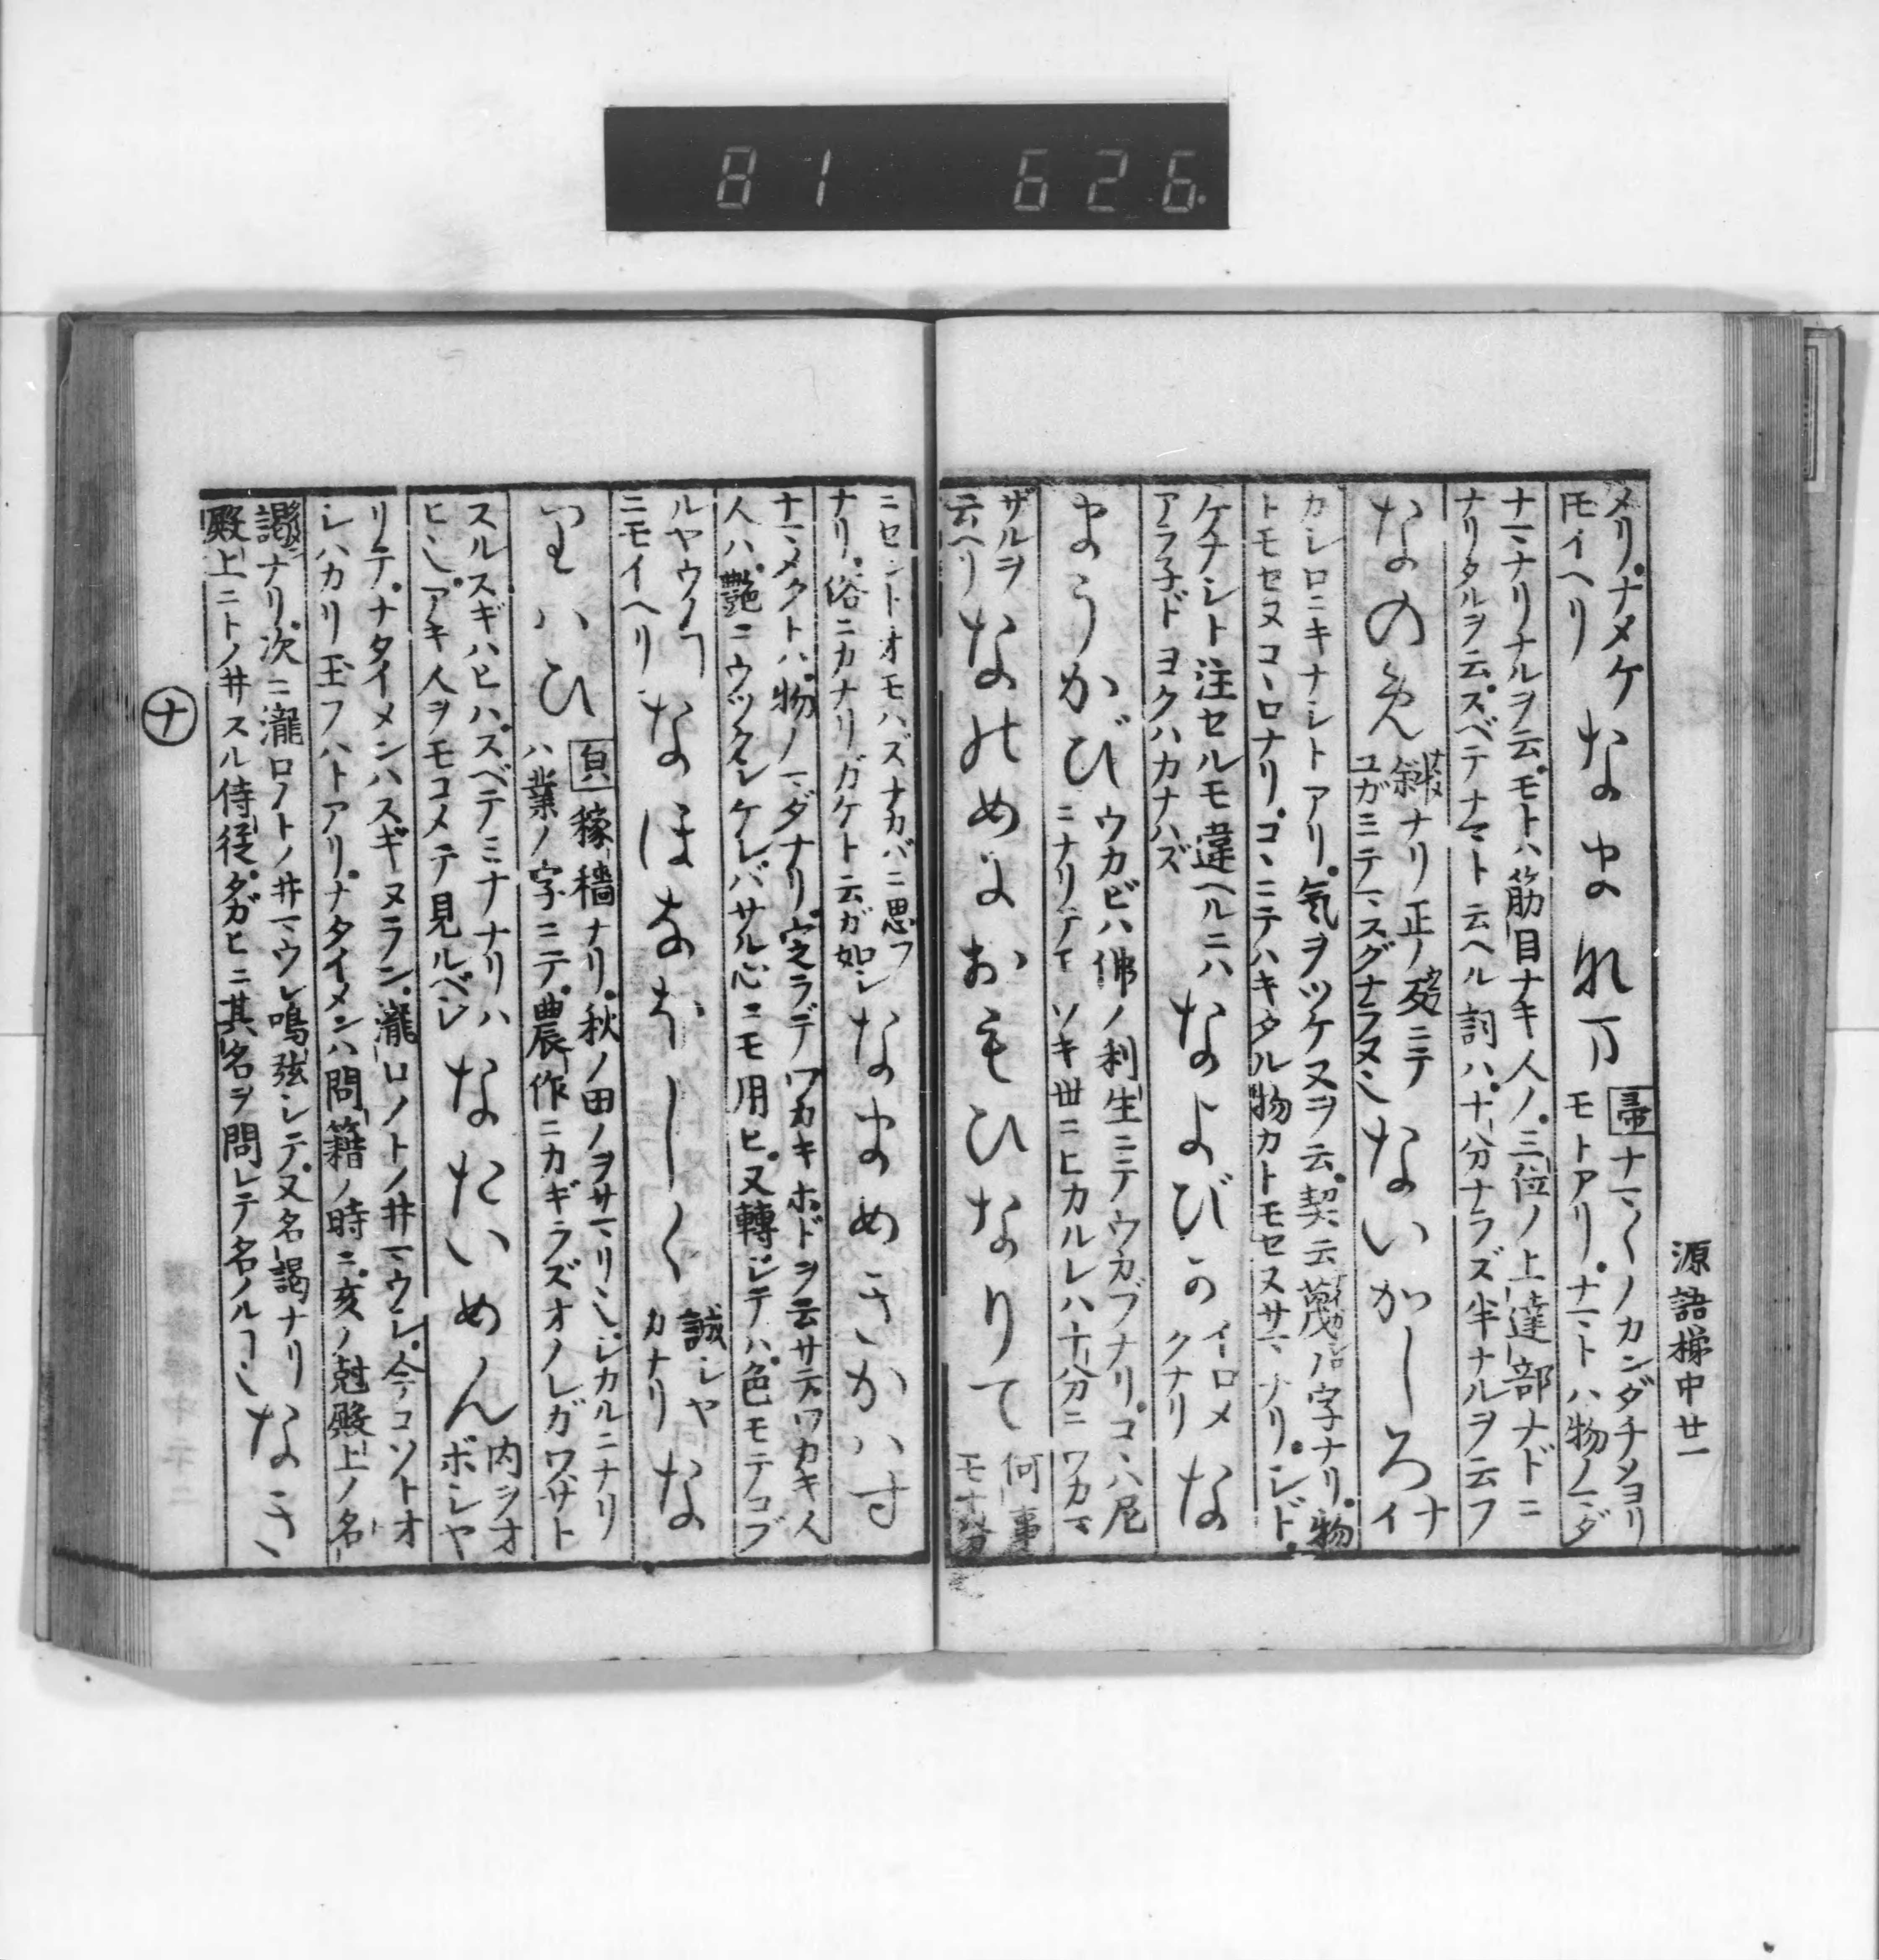 81 626
源語梯中廿一
メリ。ナメケ
𪜈イヘリ
なまなり
帚ナマ〱ノカンダチメヨリ
モトアリ。ナマトハ物ノマダ
ナマナリナルヲ云。モトハ筋目ナキ人ノ。三位ノ上達部ナドニ
ナリタルヲ云。スベテナマト云ヘル詞ハ。十分ナラズ半ナルヲ云フ
なのめ
斜ナリ正ノ
ユガミテマスグナラヌ
ないがしろ
ナイ
カシロニキナシトアリ。気ヲツケヌヲ云。契云蔑ノ字ナリ。物
トモセヌコヽロナリ。コヽニテハキタル物カトモセヌサマナリ。シド
ケナシト注セルモ違ヘルニハ
アラ子ドヨクハカナハズ
なよびか
イロメ
クナリ
な
まうかび
ウカビハ佛ノ利生ニテウカブナリ。コヽハ尼
ニナリテ ソキ世ニヒカルレハ十分ニワカマ
ザルヲ
云ヘリ
なのめにおもひなりて
何事
モ十分
ニセントオモハズナカバニ思フ
ナリ。俗ニカナリガケト云ガ如シ
なまめきかハす
ナマメクトハ。物ノマダナリ定ラデワカキホドヲ云サテワカキ人
人ハ。艶ニウツクシケレバサル心ニモ用ヒ。又轉シテハ。色モテコブ
ルヤウノヿ
ニモイヘリ
なほなほしく
誠シヤ
カナリ
な
りハひ
稼穡ナリ。秋ノ田ノヲサマリ。シカルニナリ
ハ業ノ字ニテ。農作ニカギラズオノレガワザト
スルスギハヒハ。スベテミナナリハ
ヒ アキ人ヲモコメテ見ルベシ
なたいめん
内ヲオ
ボシヤ
リテ。ナタイメンハスギヌラン。瀧口ノトノ井マウシ。今コソトオ
シハカリ玉フハトアリ。ナタイメンハ問籍ノ時ニ。亥ノ尅殿上ノ名
謁ナリ。次ニ瀧口ノトノ井マウシ鳴弦シテ。又名謁ナリ
殿上ニトノ井スル侍従。タガヒニ其名ヲ問レテ名ノルヿ
なき
十